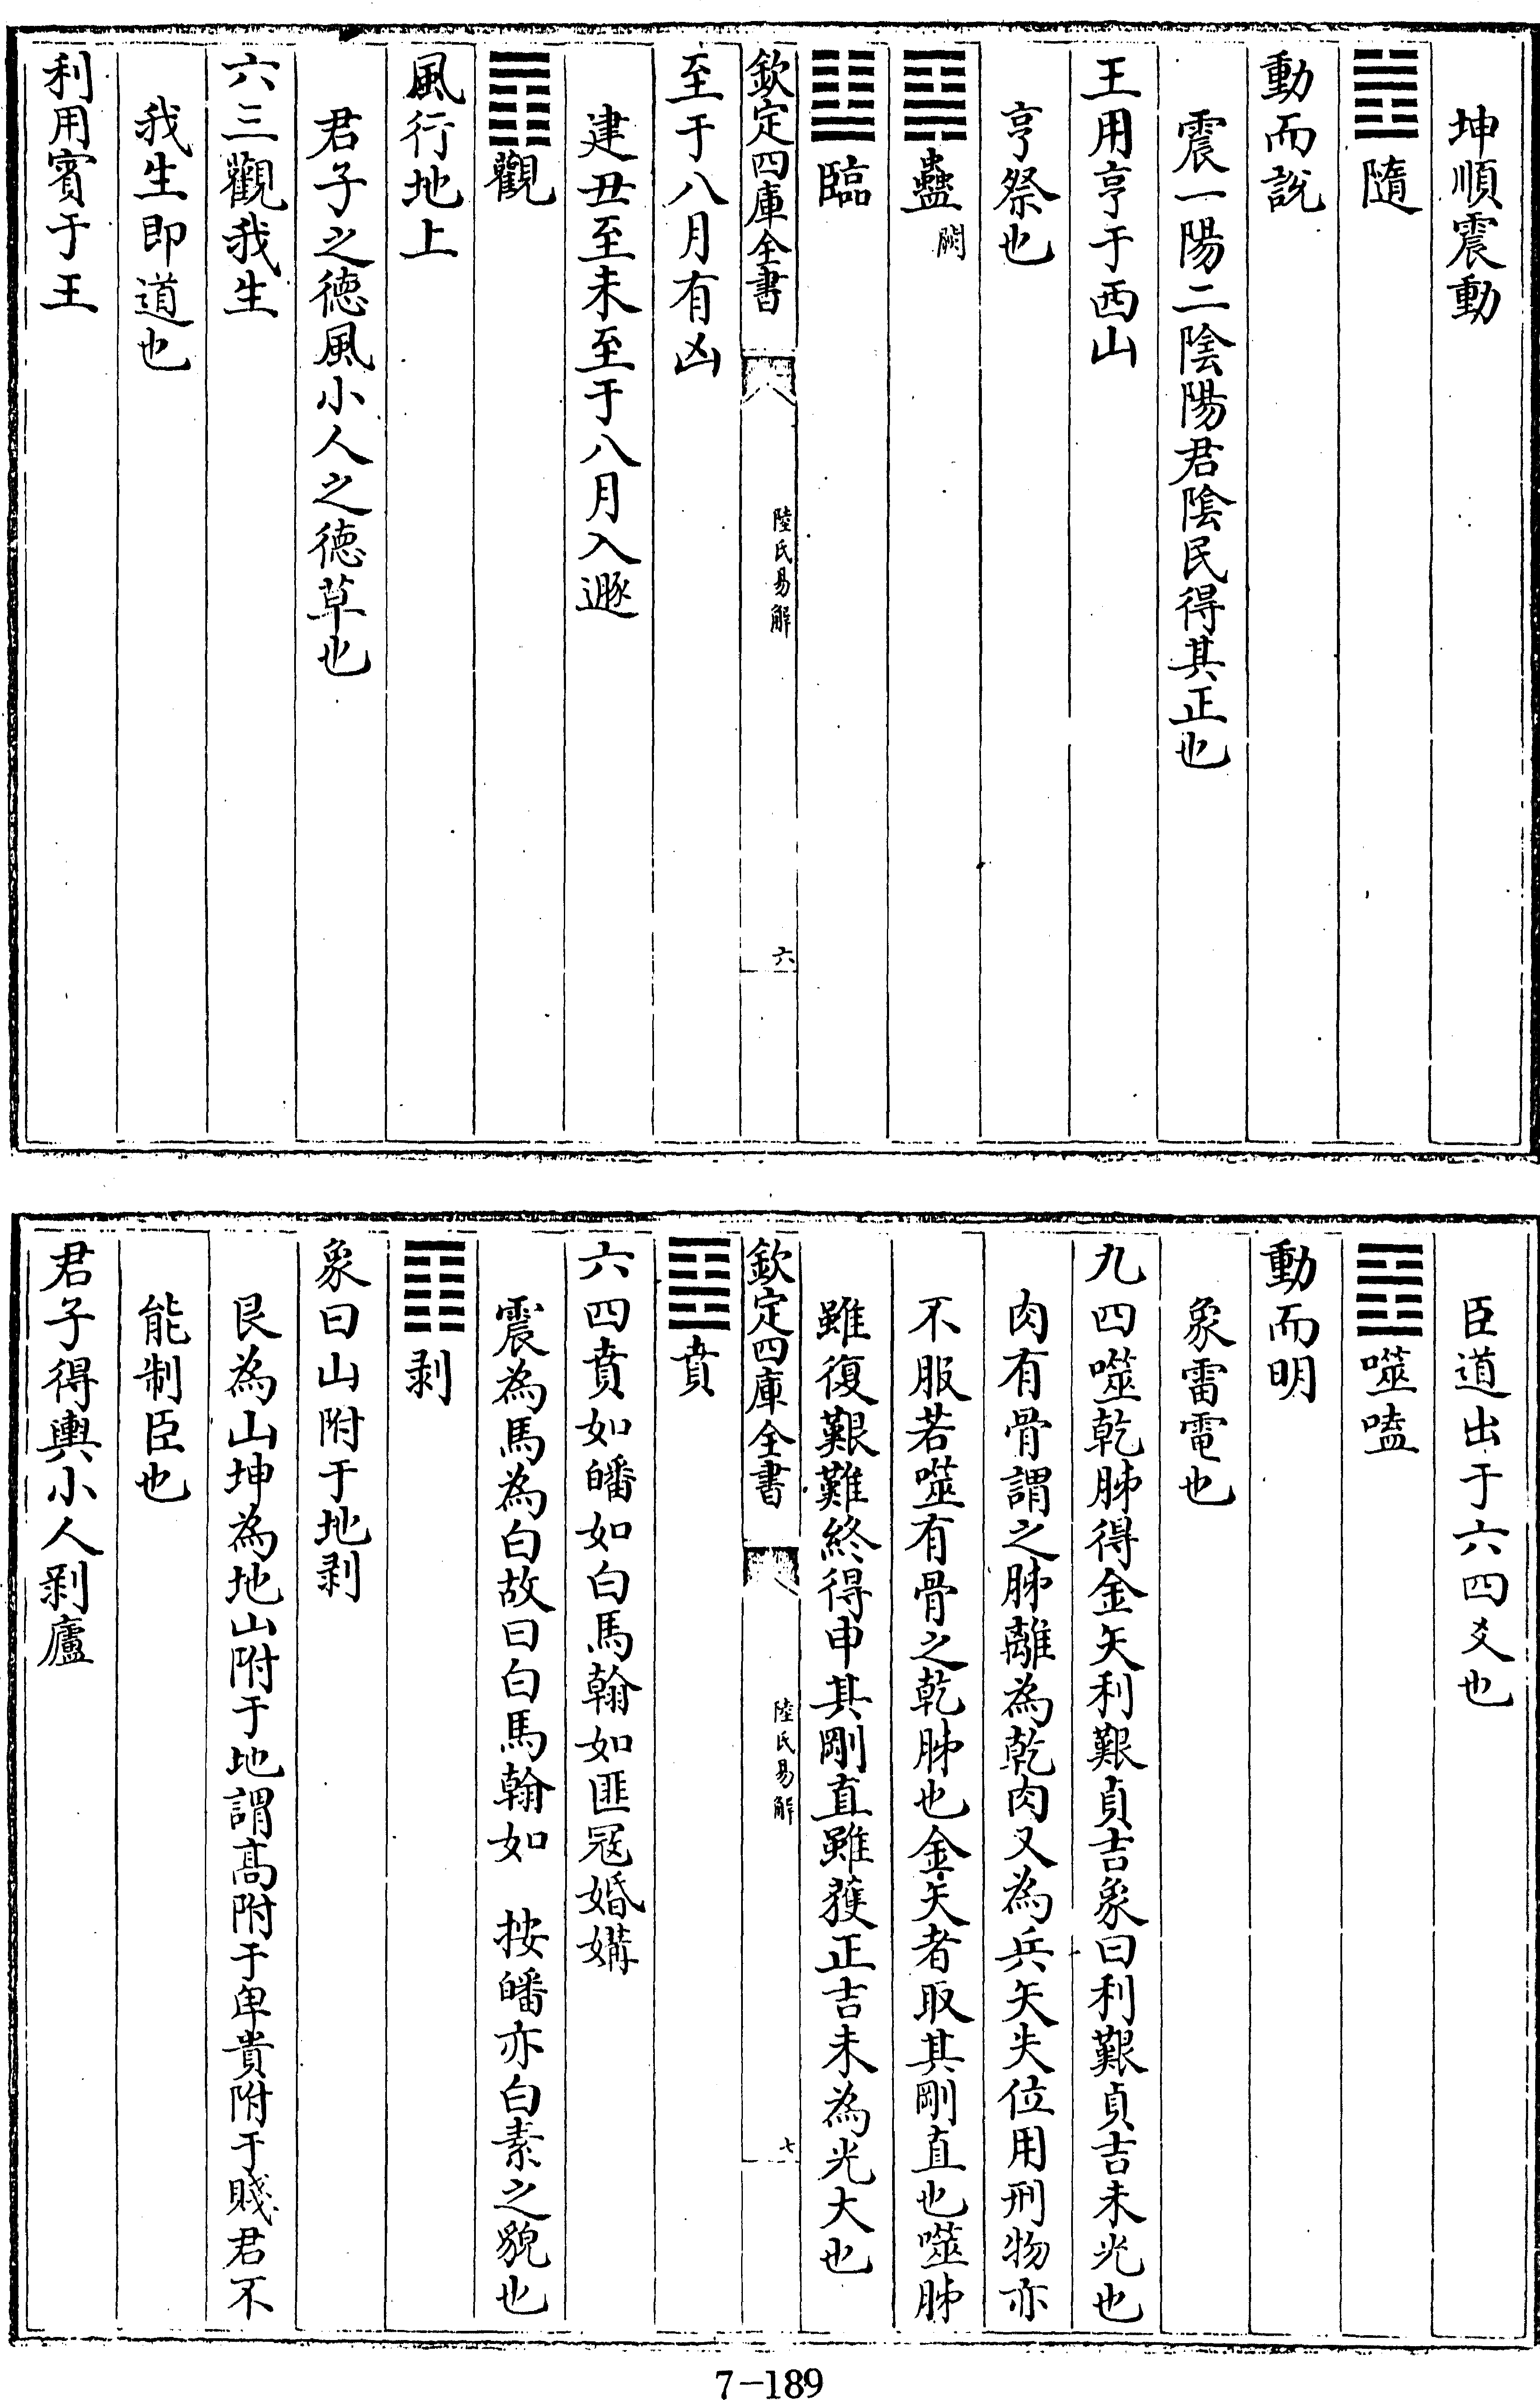 坤順震動
䷐隨
動而說
震一陽二陰陽君陰民得其正也
王用亨于西山
亨祭也
䷑蠱闕
䷒臨
欽定四庫全書 陸氏易解 六
至于八月有凶
建丑至未至于八月入遯
䷓觀
風行地上
君子之德風小人之德草也
六三觀我生
我生即道也
利用賓于王
臣道出于六四爻也
䷔噬嗑
動而明
象雷電也
九四噬乾胏得金矢利艱貞吉象曰利艱貞吉未光也
肉有骨謂之胏離為乾肉又為兵矢失位用刑物亦
不服若噬有骨之乾胏也金矢者取其剛直也噬胏
雖復艱難終得申其剛直雖獲正吉未為光大也
欽定四庫全書 陸氏易解 七
䷕賁
六四賁如皤如白馬翰如匪冦婚媾
震為馬為白故曰白馬翰如 按皤亦白素之貌也
䷖剥
象曰山附于地剥
艮為山坤為地山附于地謂髙附于卑貴附于賤君不
能制臣也
君子得輿小人剥廬
7-189